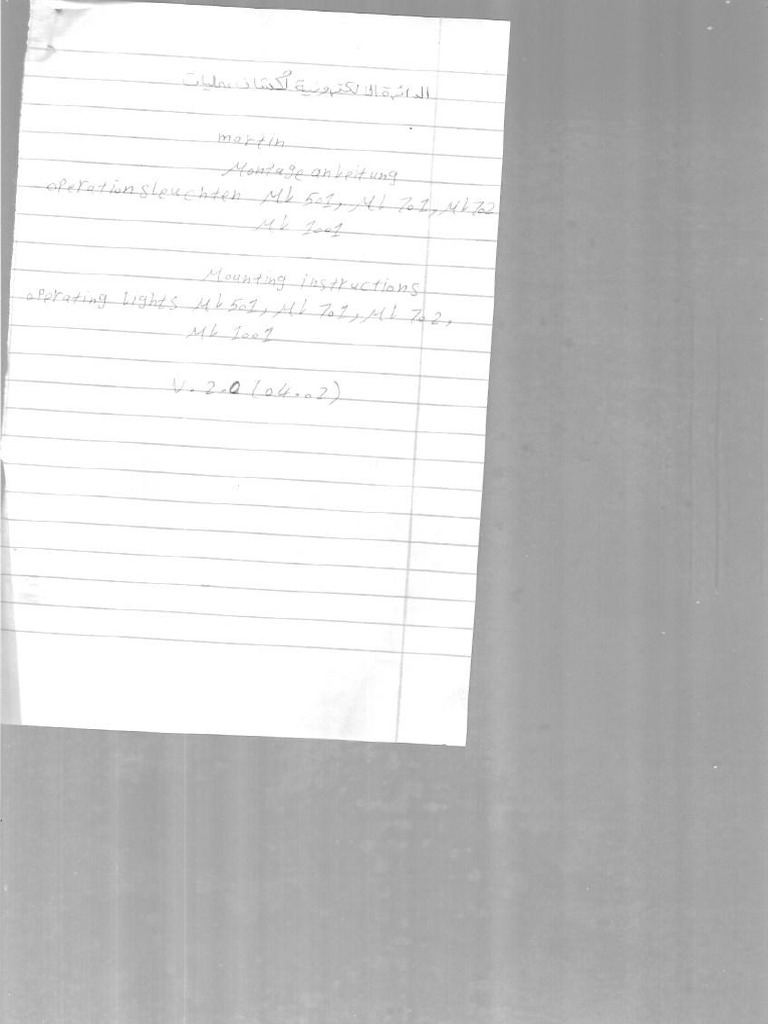 الدائرة الالكترونية لكشاف عمليات
martin
Montage anleitung
operationsleuchten ML 501, ML 701, ML 702
ML 1001
Mounting instructions
operating lights ML 501, ML 701, ML 702,
ML 1001
V. 2.0 (04.02)